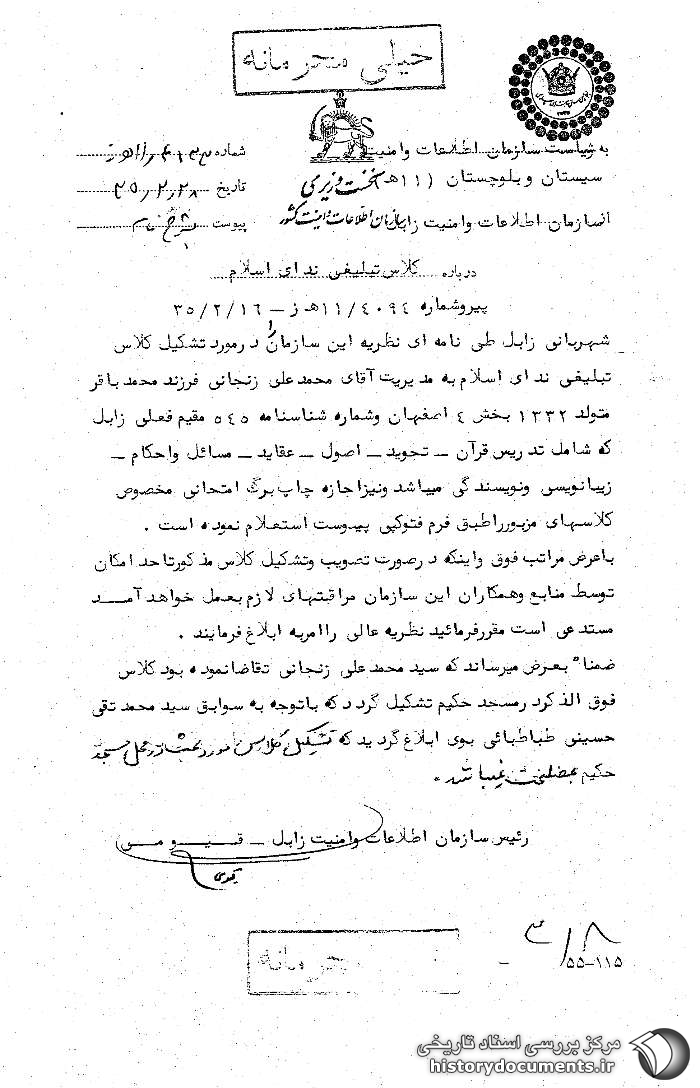 خیلی محرمانه
به ریاست سازمان اطلاعات وامنیت
شماره
سیستان وبلوچستان (۱۱هـ) نخست وزیری
تاریخ ۳۵٫۲٫۲۸
ازسازمان اطلاعات وامنیت زابل سازمان اطلاعات و امنیت کشور
پیوست
درباره کلاس تبلیغی ندای اسلام
پیروشماره ۱۱/۴۰۹۴هـ ز – ۳۵/۲/۱۶
شهربانی زابل طی نامه ای نظریه این سازمان را درمورد تشکیل کلاس
تبلیغی ندای اسلام به مدیریت آقای محمدعلی زنجانی فرزند محمدباقر
متولد ۱۳۳۲ بخش ۴ اصفهان وشماره شناسنامه ۵۴۵ مقیم فعلی زابل
که شامل تدریس قرآن – تجوید – اصول – عقاید – مسائل واحکام –
زیبانویسی ونویسندگی میباشد ونیزاجازه چاپ برگ امتحانی مخصوص
کلاسهای مزبورراطبق فرم فتوکپی پیوست استعلام نموده است .
باعرض مراتب فوق واینکه درصورت تصویب وتشکیل کلاس مذکورتاحد امکان
توسط منابع وهمکاران این سازمان مراقبتهای لازم بعمل خواهد آمد
مستدعی است مقررفرمائید نظریه عالی راامربه ابلاغ فرمایند .
ضمناً بعرض میرساند که سید محمدعلی زنجانی تقاضانموده بود کلاس
فوق الذکردرمسجد حکیم تشکیل گردد که باتوجه به سوابق سید محمدتقی
حسینی طباطبائی بوی ابلاغ گردید که تشکیل کلاس مورد بحث در محل مسجد
حکیم بمصلحت نمیباشد .
رئیس سازمان اطلاعات وامنیت زابل –
محرمانه
۵۵-۱۱۵
مرکز بررسی اسناد تاریخی
historydocuments.ir